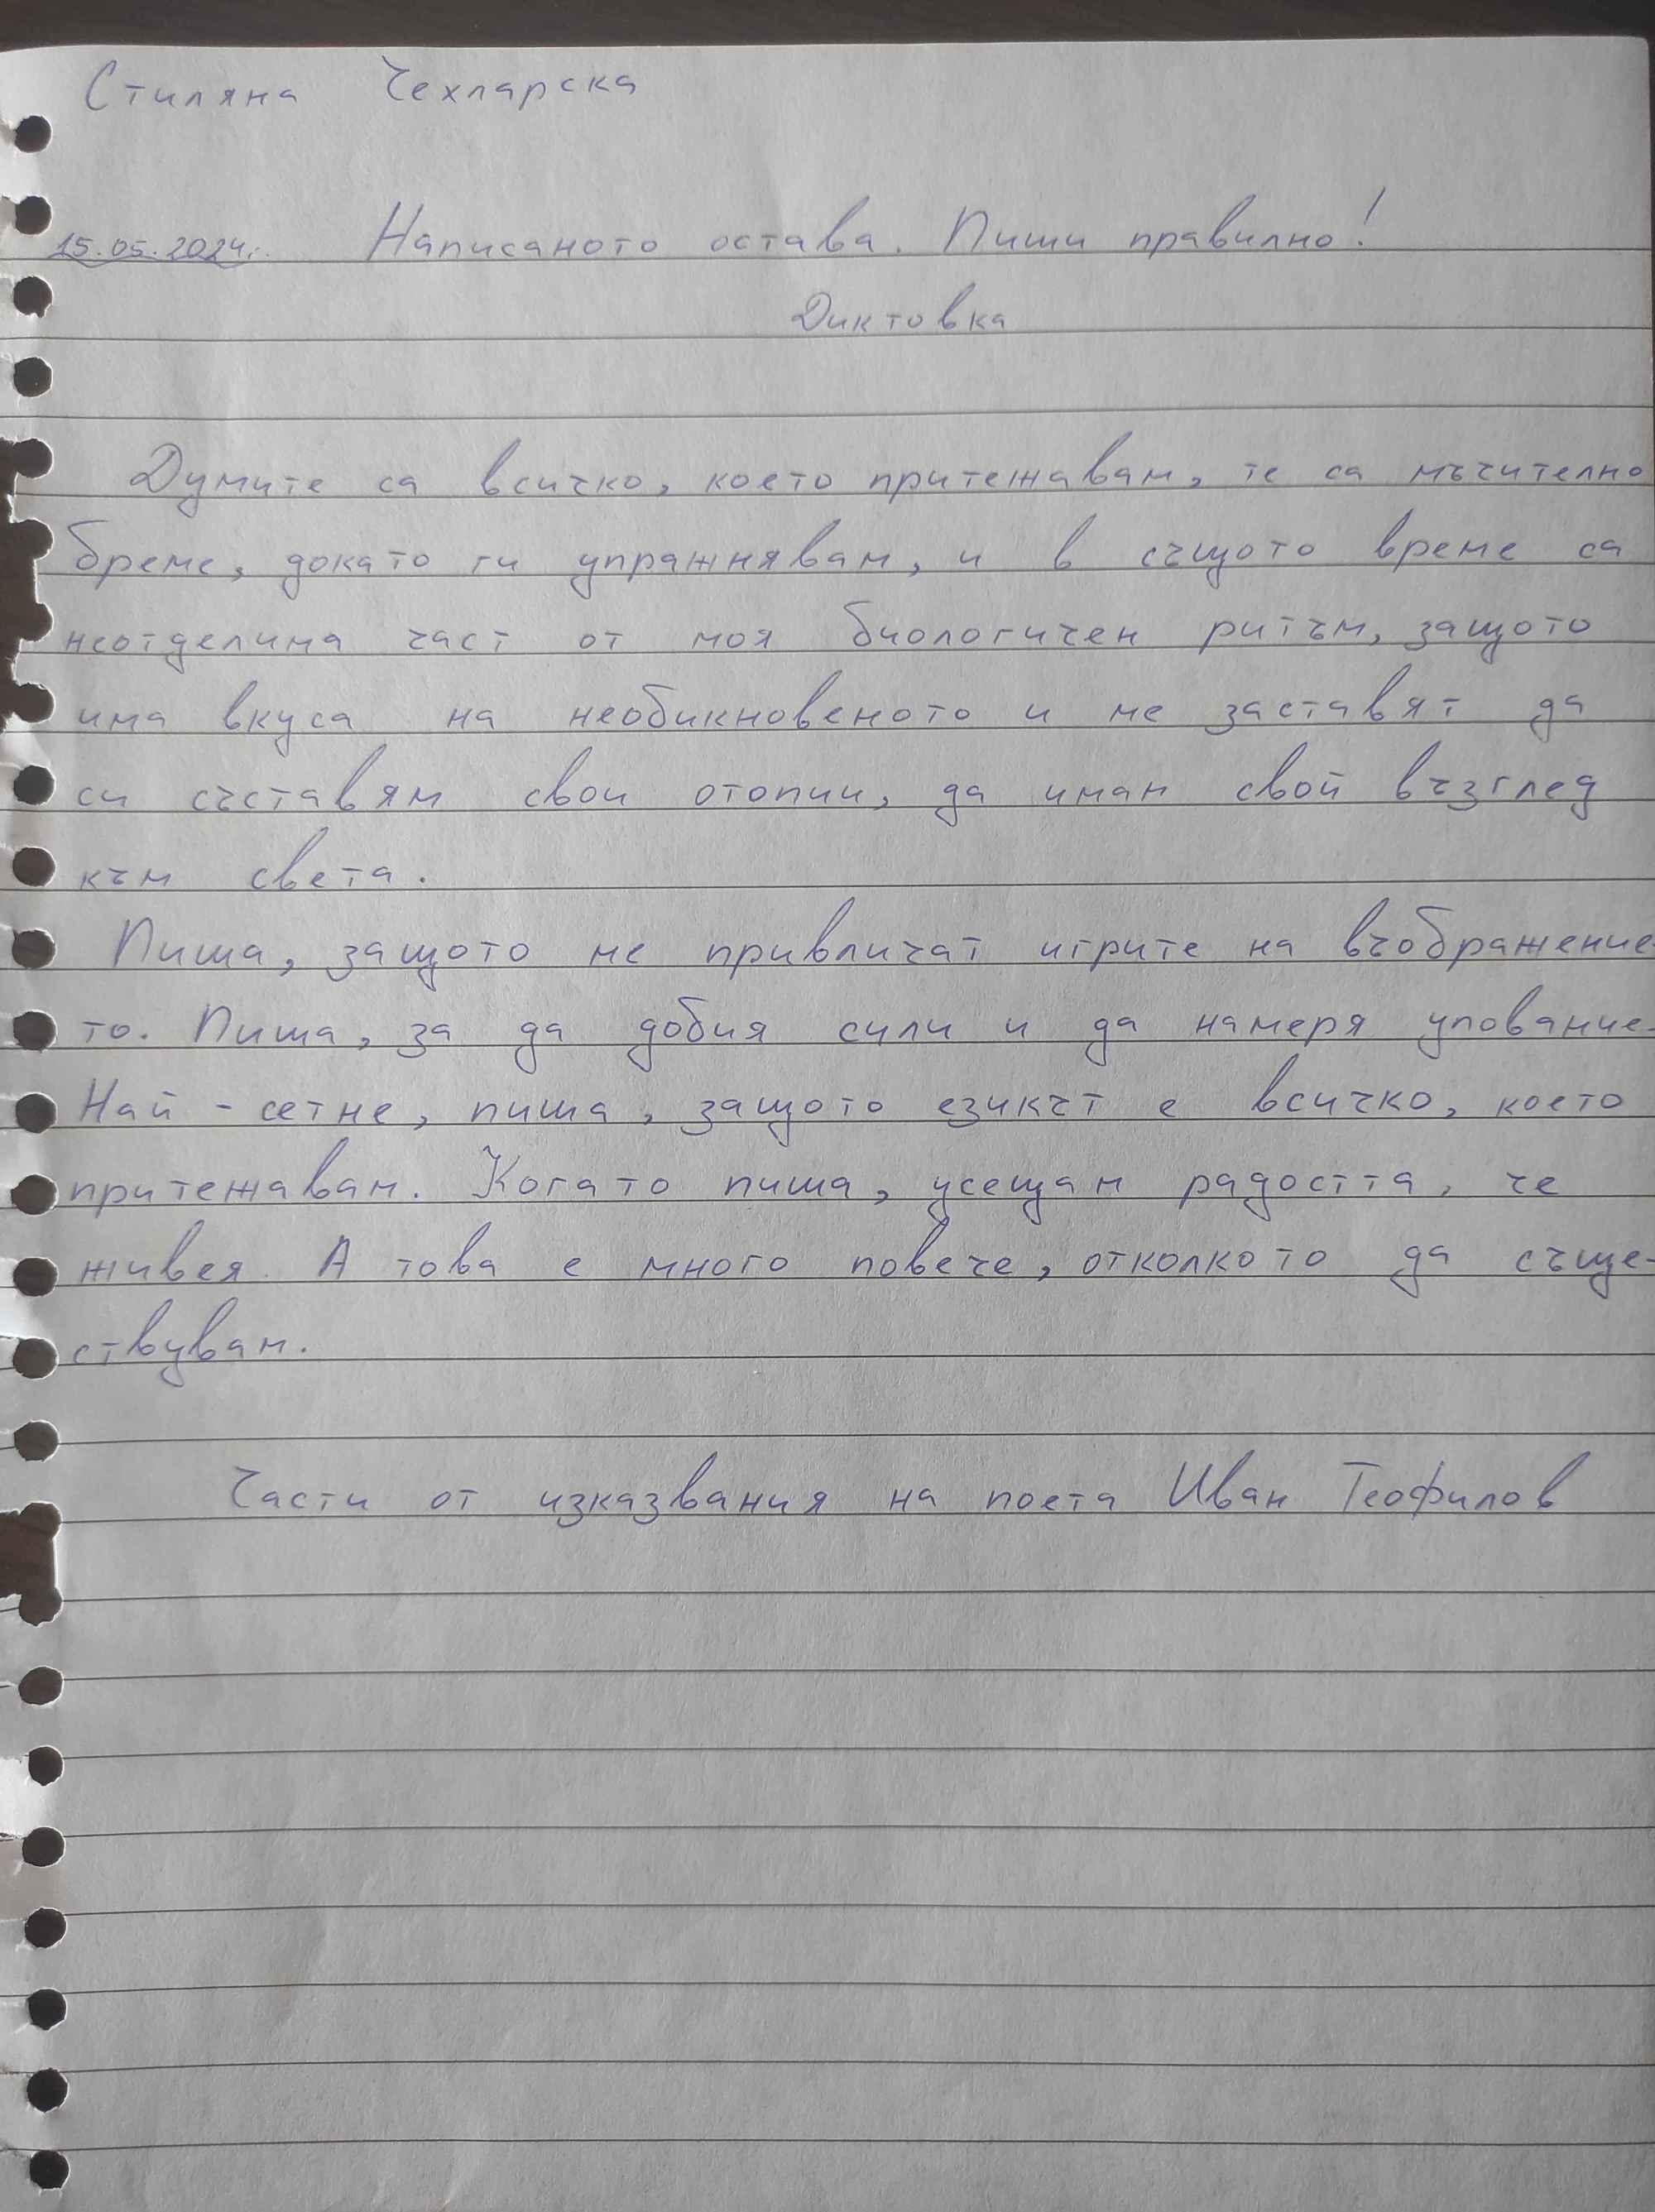 Стиляна Чехларска
15.05.2024г. Написаното остава. Пиши правилно!
Диктовка
Думите са всичко, което притежавам, те са мъчително
бреме, докато ги упражнявам, и в същото време са
неотделима част от моя биологичен ритъм, защото
има вкуса на необикновеното и ме заставят да
си съставям свои отопии, да имам свой възглед
към света.
Пиша, защото ме привличат игрите на въображение-
то. Пиша, за да добия сили и да намеря упование.
Най - сетне, пиша, защото езикът е всичко, което
притежавам. Когато пиша, усещам радостта, че
живея. А това е много повече, отколкото да съще-
ствувам.
Части от изказвания на поета Иван Теофилов